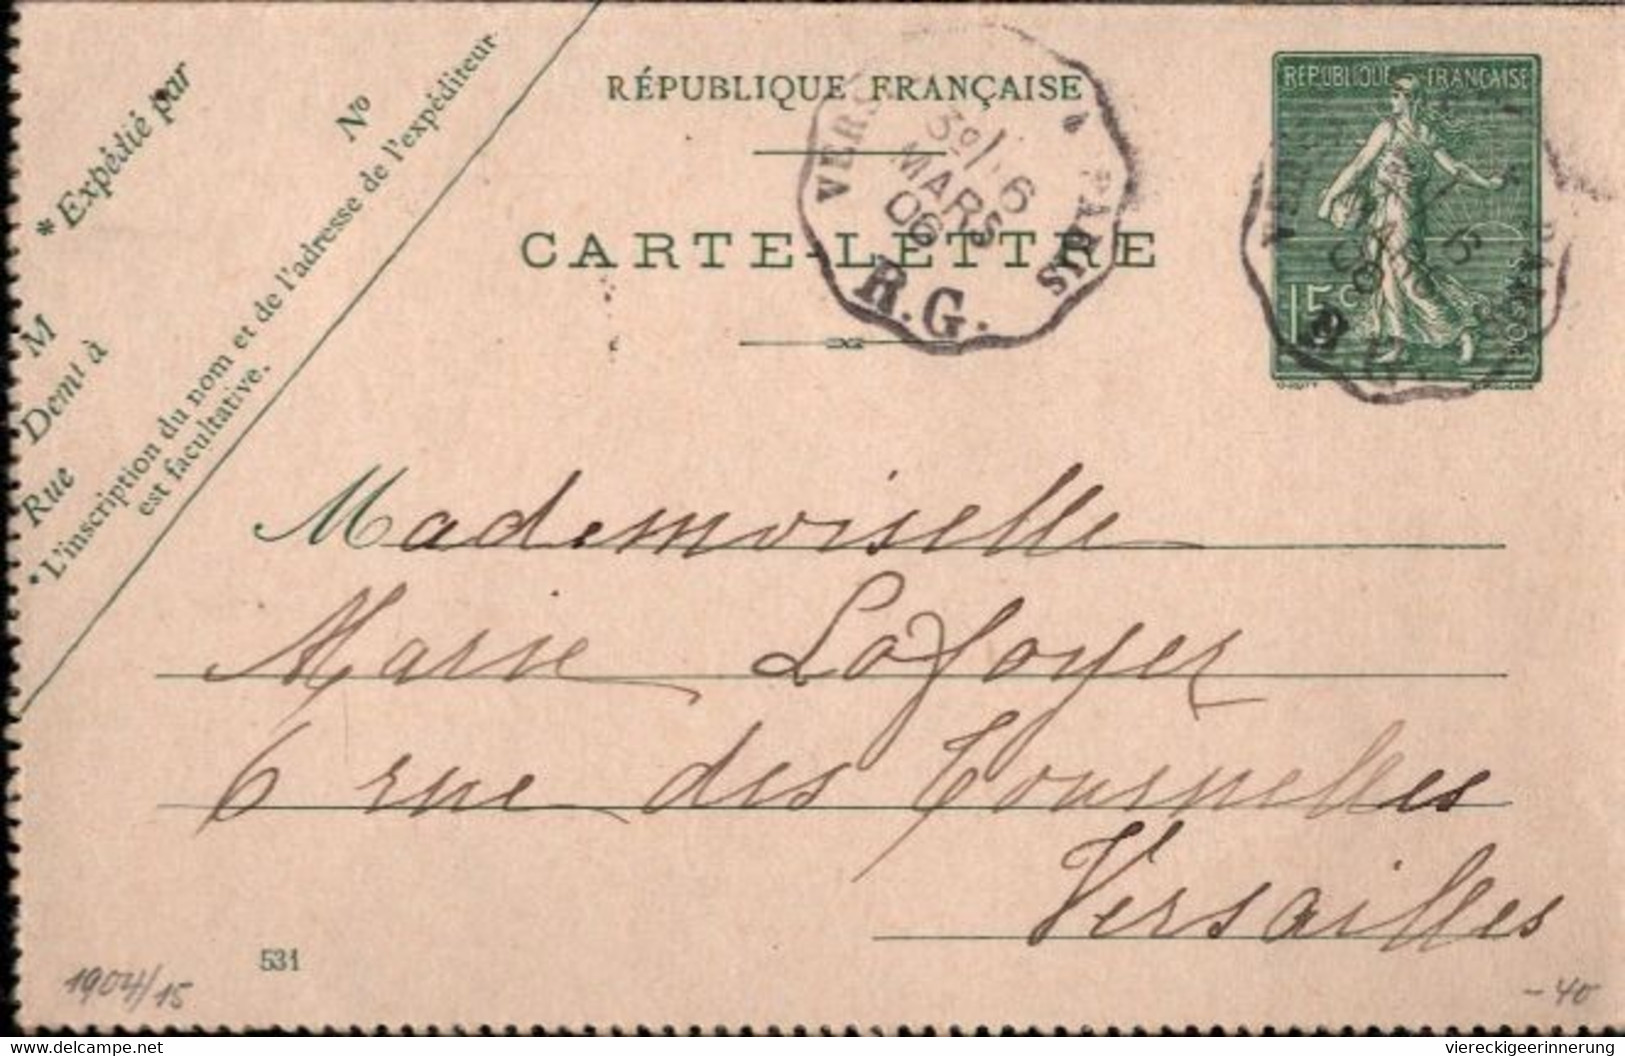 * Expédié par
Nº
M
Demt à
Rue
* L'inscription du nom et de l'adresse de l'expéditeur
est facultative.
RÉPUBLIQUE FRANÇAISE
CARTE-LETTRE
à PARIS
MARS
06
R.G.
RÉPUBLIQUE FRANÇAISE
15c
POSTES
Mademoiselle
Marie Lafoyer
6 rue des Tournelles
Versailles
531
1904/15
-40
delcampe.net
viereckigeerinnerung